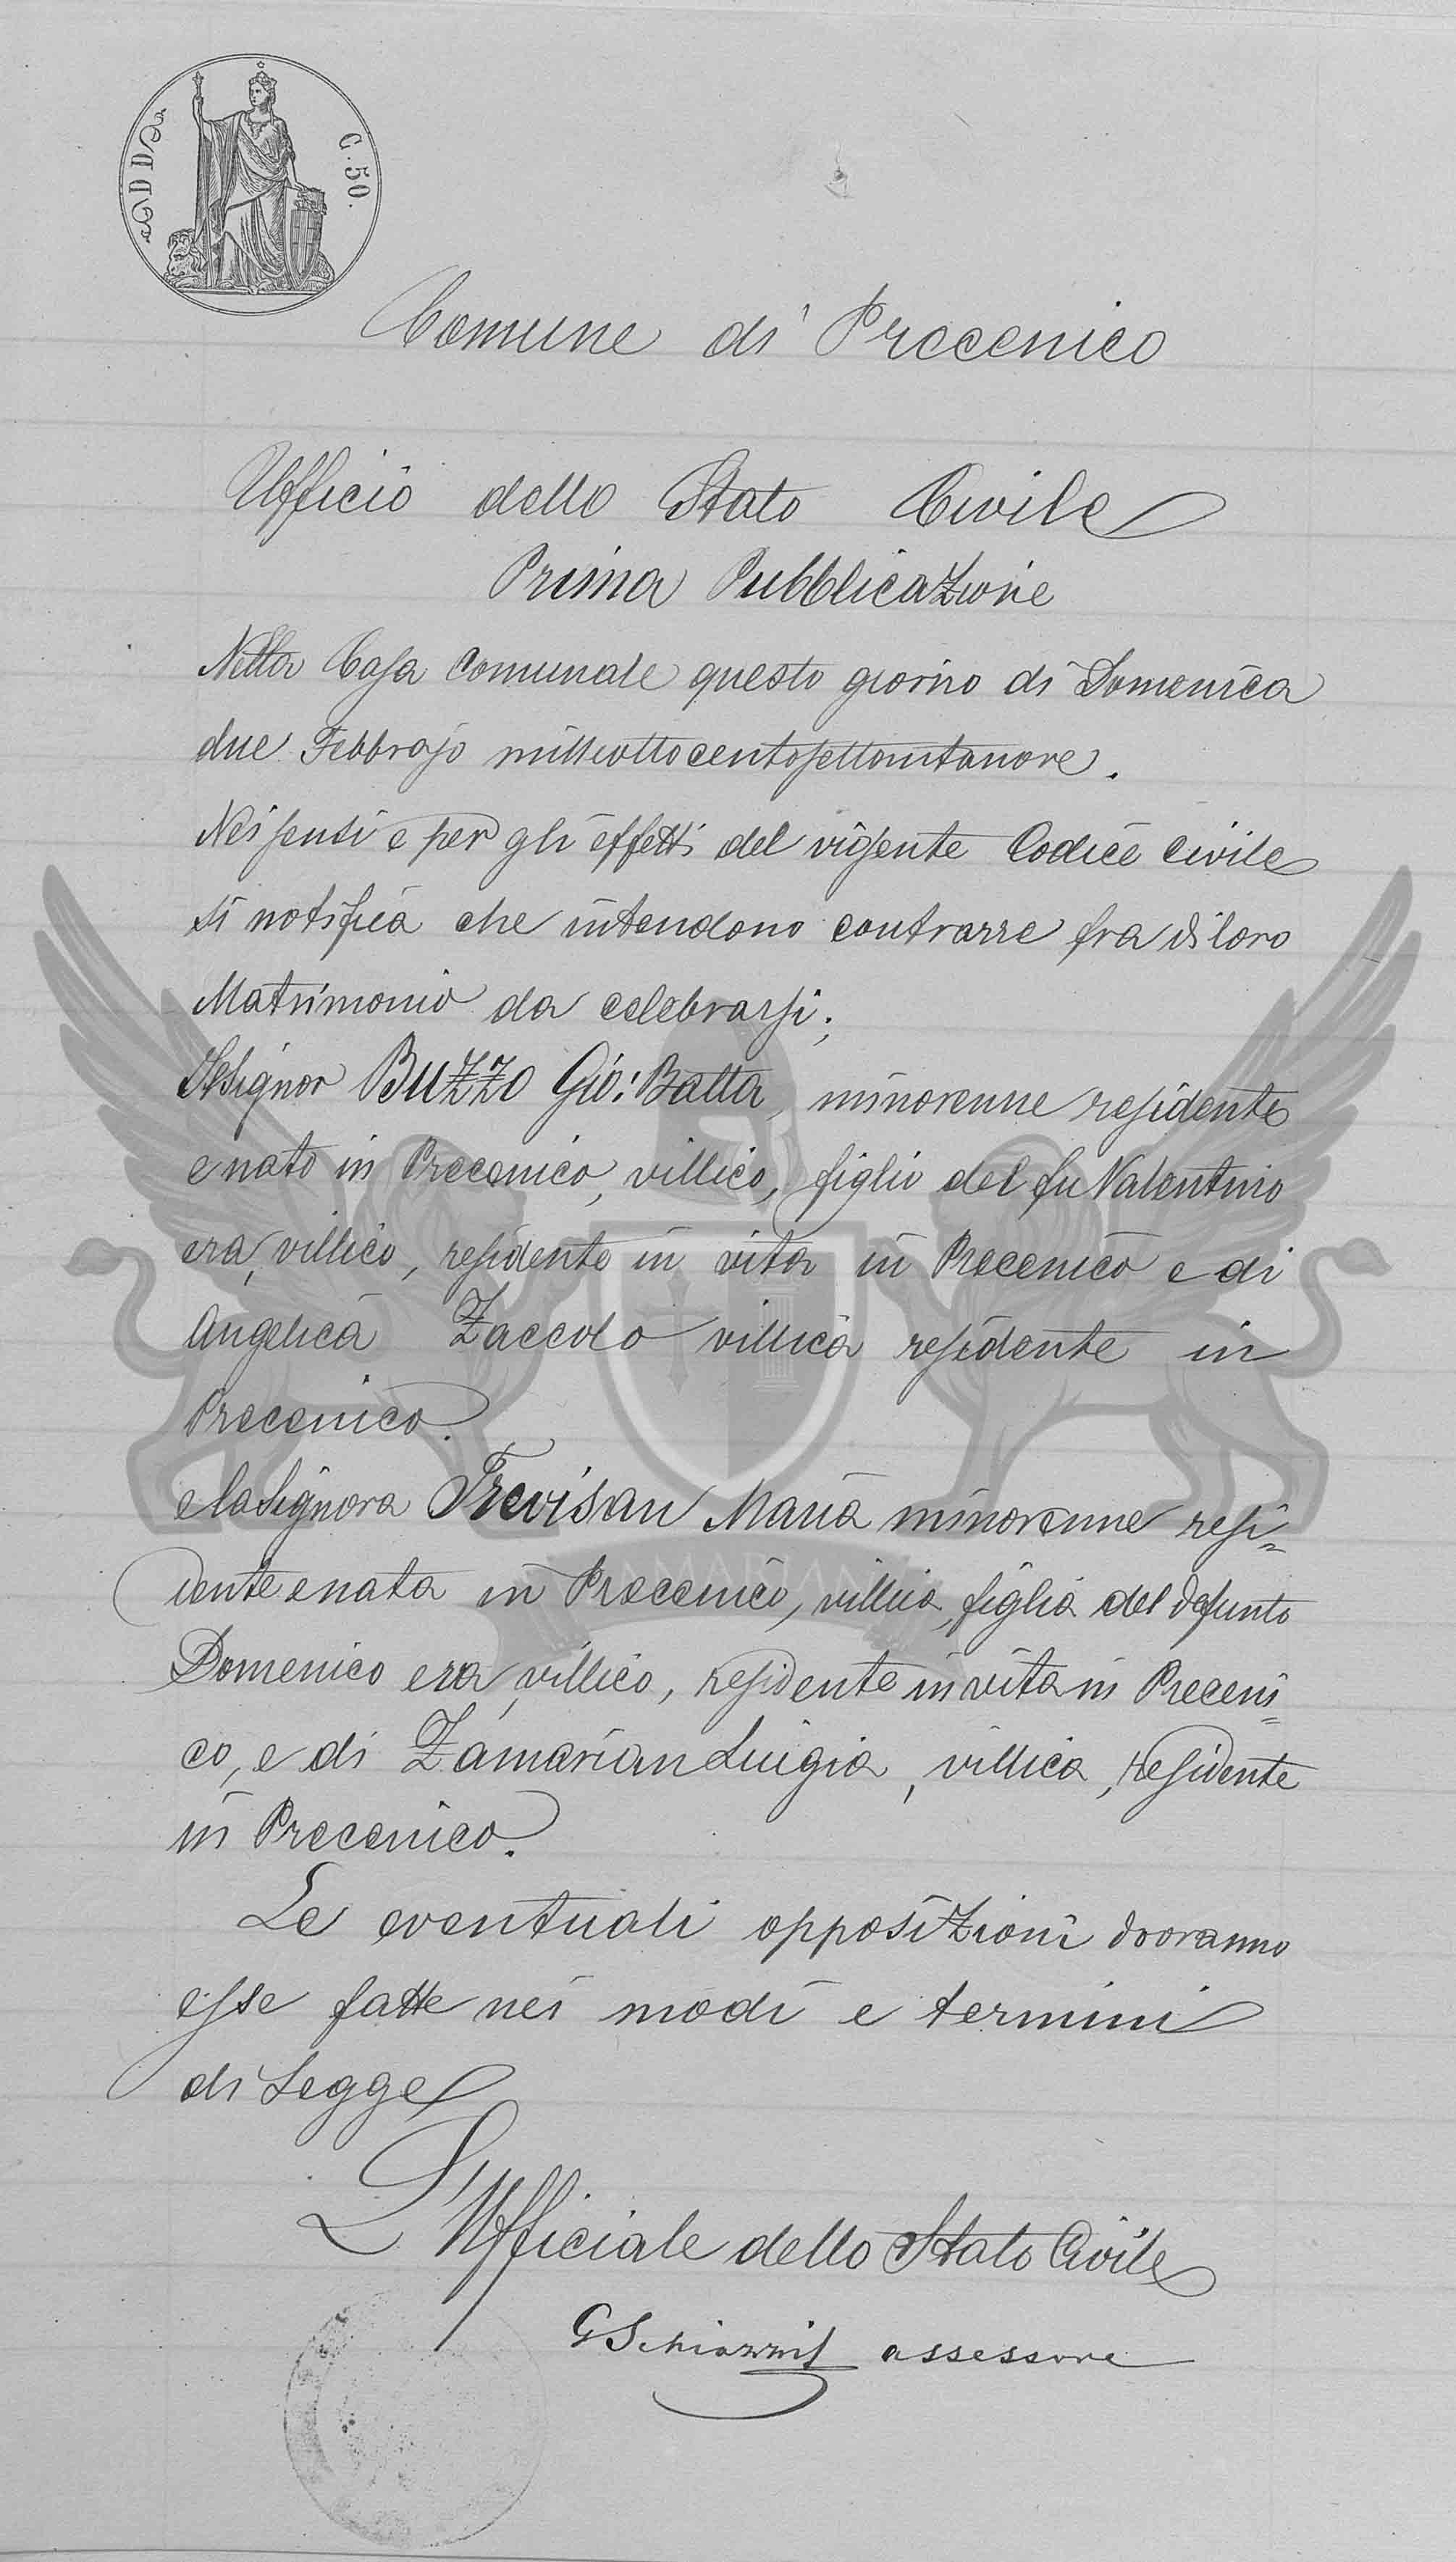 C. 50.
Comune di Precenico
Ufficio dello Stato Civile
Prima Pubblicazione
Nella Casa Comunale questo giorno di Domenica
due Febbrajo millottocentosettantanove.
Nei sensi e per gli effetti del vigente Codice Civile
si notifica che intendono contrarre fra di loro
Matrimonio da celebrarsi;
Il Signor Buzzo Gio: Batta, minorenne residente
e nato in Precenico, villico, figlio del fu Valentino
era villico, residente in vita in Precenico e di
Angelica Zaccolo villica residente in
Precenico.
e la Signora Trevisan Maria minorenne resi=
dente e nata in Precenico, villica, figlia del defunto
Domenico era villico, residente in vita in Preceni=
co, e di Zamarian Luigia, villica, residente
in Precenico.
Le eventuali opposizioni dovranno
esse fatte nei modi e termini
di Legge
L'Ufficiale dello Stato Civile
assessore